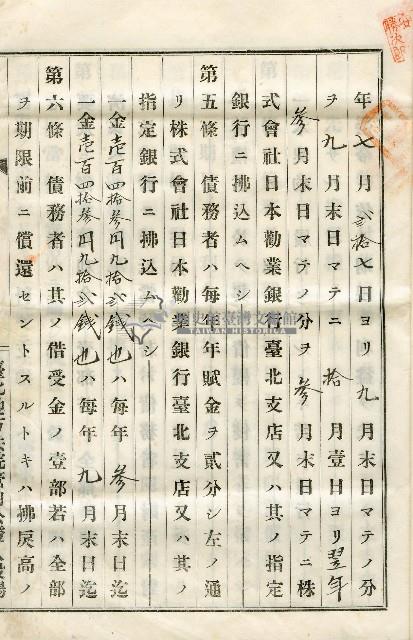 年七月弐拾七日ヨリ九月末日マテノ分
ヲ九月末日マテニ拾月壹日ヨリ翌年
参月末日マテノ分ヲ参月末日マテニ株
式會社日本勸業銀行臺北支店又ハ其ノ指定
銀行ニ拂込ムヘシ
第五條債務者ハ每年年賦金ヲ貳分シ左ノ通
リ株式會社日本勸業銀行臺北支店又ハ其ノ
指定銀行ニ拂込ムヘシ
一金壱百四拾参円九拾弐錢也ハ每年参月末日迄
一金壱百四拾参円九拾弐錢也ハ每年九月末日迄
第六條債務者ハ其ノ借受金ノ壹部若ハ全部
ヲ期限前ニ償還セントスルトキハ拂戻高ノ
TAIWAN HISTORICA